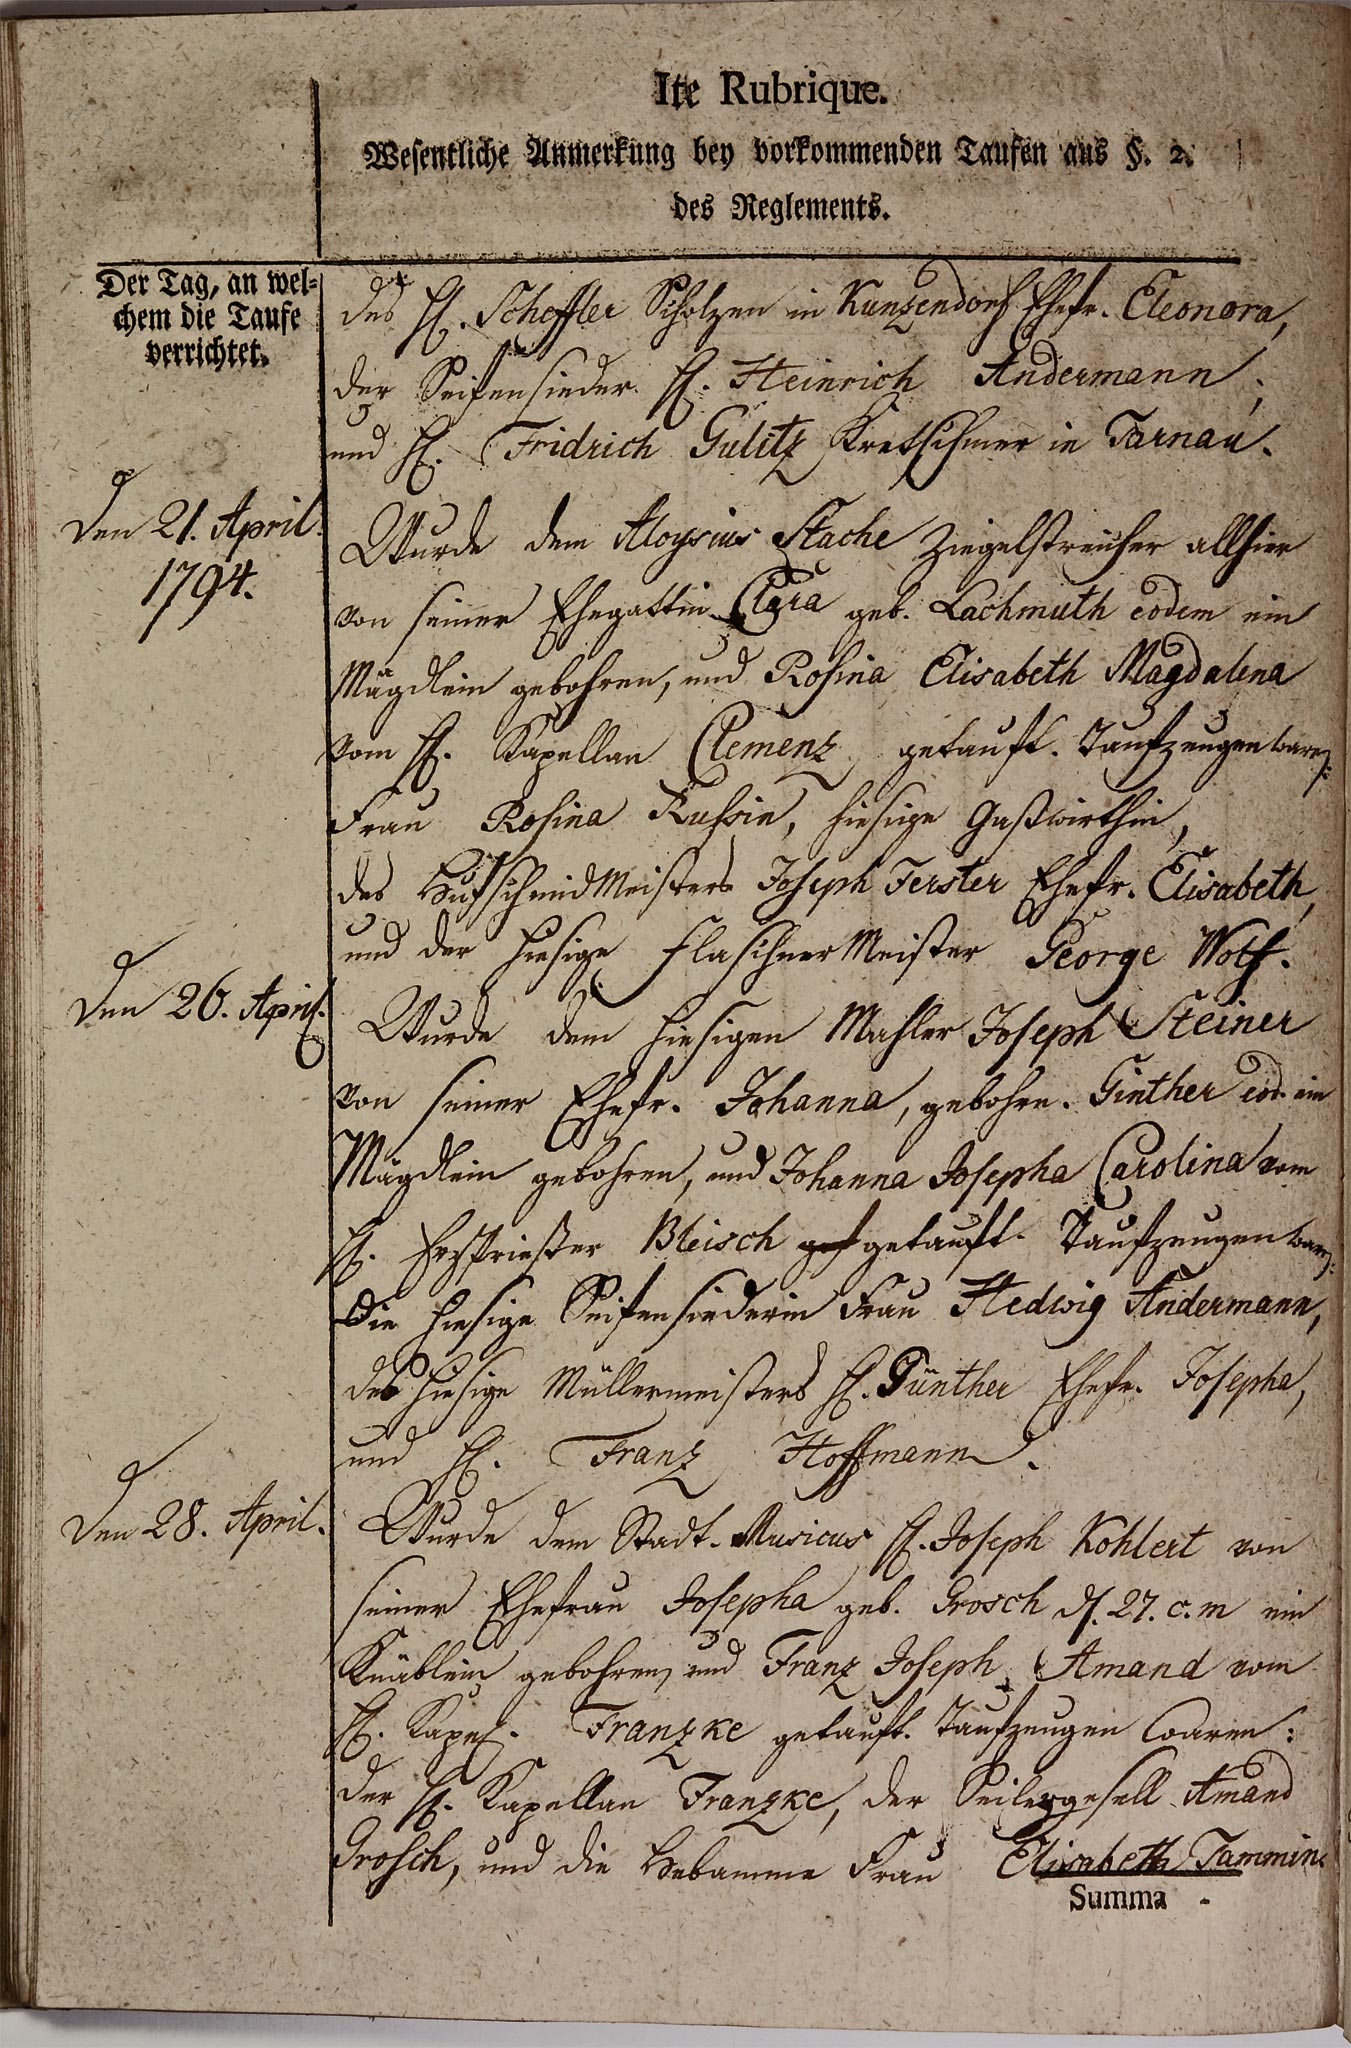 Ite Rubrique.
Wesentliche Anmerkung bey vorkommenden Taufen aus §. 2.
des Reglements.
Der Tag, an wel-
chem die Taufe
verrichtet.
des H. Scheffler Scholzen in Kunzendorf Ehefr. Eleonora,
der Seifensieder H. Heinrich Andermann,
und H. Fridrich Gulitz Kretschmer in Tarnau.
Den 21. April
1794.
Wurde dem Aloysius Stache Ziegelstreicher allhier
von seiner Ehegattin Clara geb. Lachmuth eodem ein
Mägdlein gebohren, und Rosina Elisabeth Magdalena
vom H. Kapellan Clemenz getauft. Taufzeugen waren:
Frau Rosina Russin, hiesige Gaßwirthin,
des Hufschmid Meisters Joseph Ferster Ehefr. Elisabeth,
und der hiesige Flaschner Meister George Wolf.
Den 26. April.
Wurde dem hiesigen Mahler Joseph Steiner
von seiner Ehefr. Johanna, gebohrn. Ginther eod. ein
Mägdlein gebohren, und Johanna Josepha Carolina vom
H. Erzprießter Bleisch getauft. Taufzeugen waren:
Die hiesige Seifensiederin Frau Hedwig Andermann,
des hiesige Müllermeisters H. Günther Ehefr. Josepha,
und H. Franz Hoffmann.
Den 28. April.
Wurde dem Stadt-Musicus H. Joseph Kohlert von
seiner Ehefrau Josepha geb. Grosch d. 27. c. m ein
Knäblein gebohren, und Franz Joseph Amand vom
H. Kapel. Franzke getauft. Taufzeugen waren:
Der H. Kapellan Franzke, der Seilergesell Amand
Grosch, und die Hebamme Frau Elisabeth Tammin.
Summa -